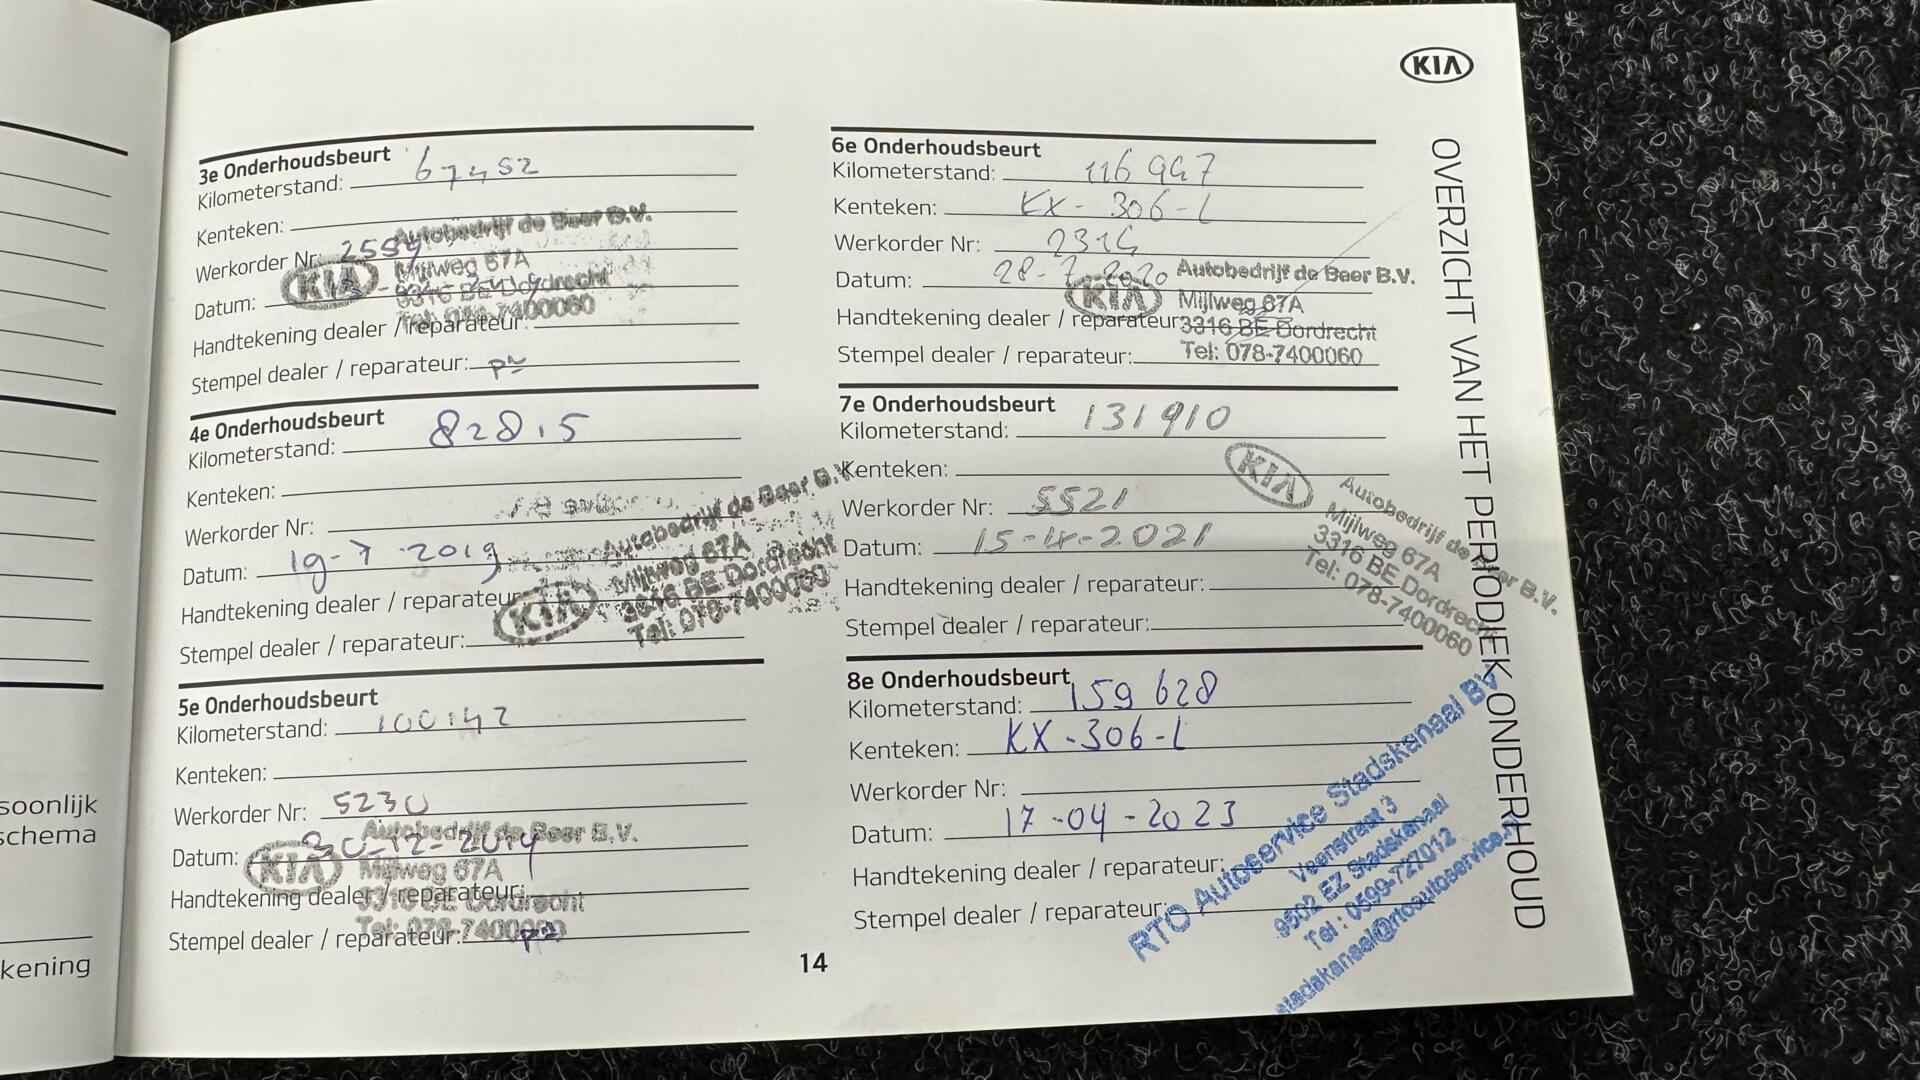 KIA
OVERZICHT VAN HET PERIODIEK ONDERHOUD
soonlijk
schema
kening
3e Onderhoudsbeurt
Kilometerstand: 67452
Kenteken:
Autobedrijf de Beer B.V.
Werkorder Nr:
KIA Mijlweg 67A
3316 BE Dordrecht
Datum:
Tel: 078-7400060
Handtekening dealer / reparateur:
Stempel dealer / reparateur:
4e Onderhoudsbeurt
Kilometerstand: 82815
Kenteken:
Werkorder Nr:
Datum: 19-7-2019
Handtekening dealer / reparateur:
Stempel dealer / reparateur:
KIA Autobedrijf de Beer B.V.
Mijlweg 67A
3316 BE Dordrecht
Tel: 078-7400060
5e Onderhoudsbeurt
Kilometerstand: 100142
Kenteken:
Werkorder Nr: 5230
Autobedrijf de Beer B.V.
Datum: 30-12-2019
KIA Mijlweg 67A
Handtekening dealer / reparateur:
3316 BE Dordrecht
Stempel dealer / reparateur:
Tel: 078-7400060
6e Onderhoudsbeurt
Kilometerstand: 116947
Kenteken: KX-306-L
Werkorder Nr: 2314
Datum: 28-7-2020
Autobedrijf de Beer B.V.
KIA Mijlweg 67A
Handtekening dealer / reparateur
3316 BE Dordrecht
Stempel dealer / reparateur:
Tel: 078-7400060
7e Onderhoudsbeurt
Kilometerstand: 131910
Kenteken:
Werkorder Nr: 5521
Datum: 15-4-2021
Handtekening dealer / reparateur:
Stempel dealer / reparateur:
KIA Autobedrijf de Beer B.V.
Mijlweg 67A
3316 BE Dordrecht
Tel: 078-7400060
8e Onderhoudsbeurt
Kilometerstand: 159628
Kenteken: KX-306-L
Werkorder Nr:
Datum: 17-04-2023
Handtekening dealer / reparateur:
Stempel dealer / reparateur:
RTO Autoservice Stadskanaal BV
Veenstraat 3
9502 EZ Stadskanaal
Tel: 0599-727012
stadskanaal@rtoautoservice.
14